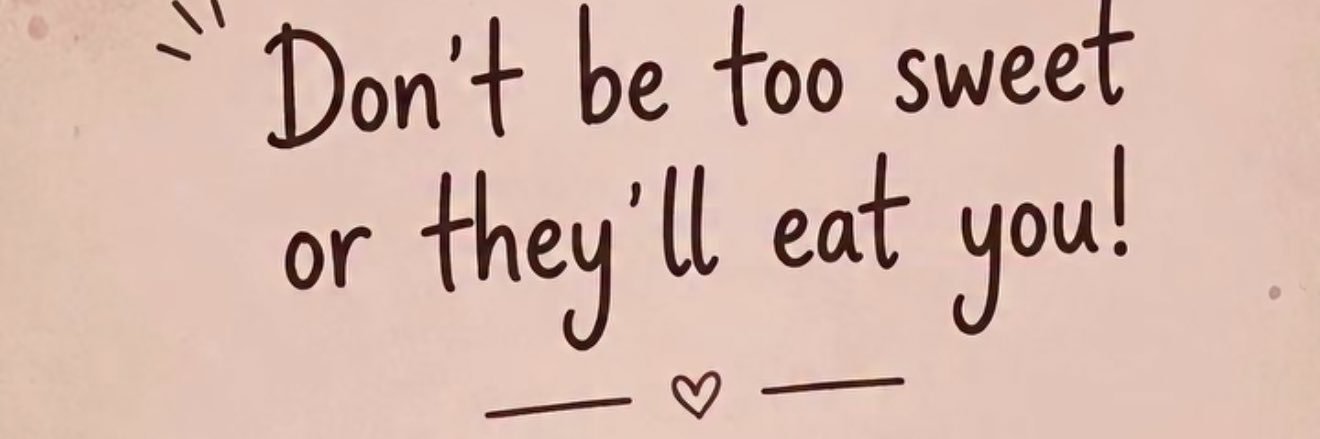 Don't be too sweet
or they'll eat you!